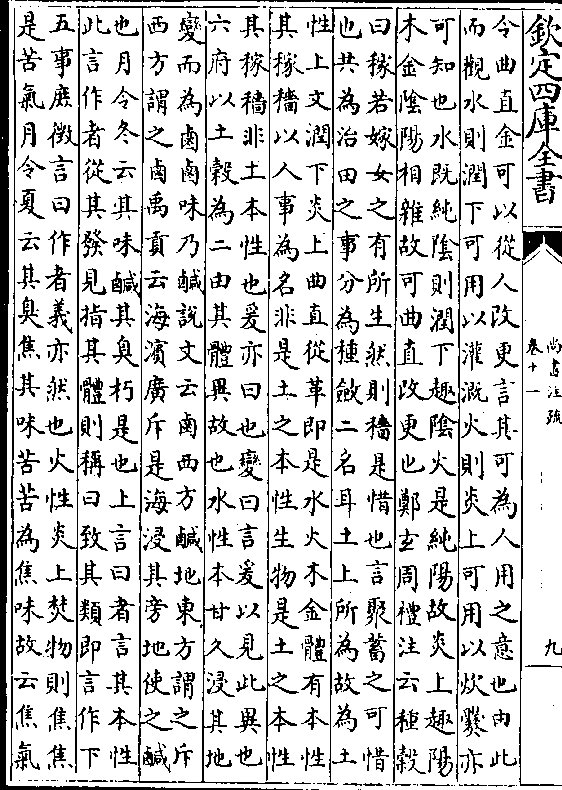 欽定四庫全書
尚書注疏
卷十一
九
令曲直金可以從人改更言其可為人用之意也由此
而觀水則潤下可用以灌溉火則炎上可用以炊爨亦
可知也水既純陰則潤下趣陰火是純陽故炎上趣陽
木金陰陽相雜故可曲直改更也鄭玄周禮注云種穀
曰稼若嫁女之有所生然則穡是惜也言聚蓄之可惜
也共為治田之事分為種斂二名耳土上所為故為土
性上文潤下炎上曲直從革即是水火木金體有本性
其稼穡以人事為名非是土之本性生物是土之本性
其稼穡非土本性也爰亦曰也變曰言爰以見此異也
六府以土穀為二由其體異故也水性本甘久浸其地
變而為鹵鹵味乃鹹說文云鹵西方鹹地東方謂之斥
西方謂之鹵禹貢云海濱廣斥是海浸其旁地使之鹹
也月令冬云其味鹹其臭朽是也上言曰者言其本性
此言作者從其發見指其體則稱曰致其類即言作下
五事庶徵言曰作者義亦然也火性炎上焚物則焦焦
是苦氣月令夏云其臭焦其味苦苦為焦味故云焦氣